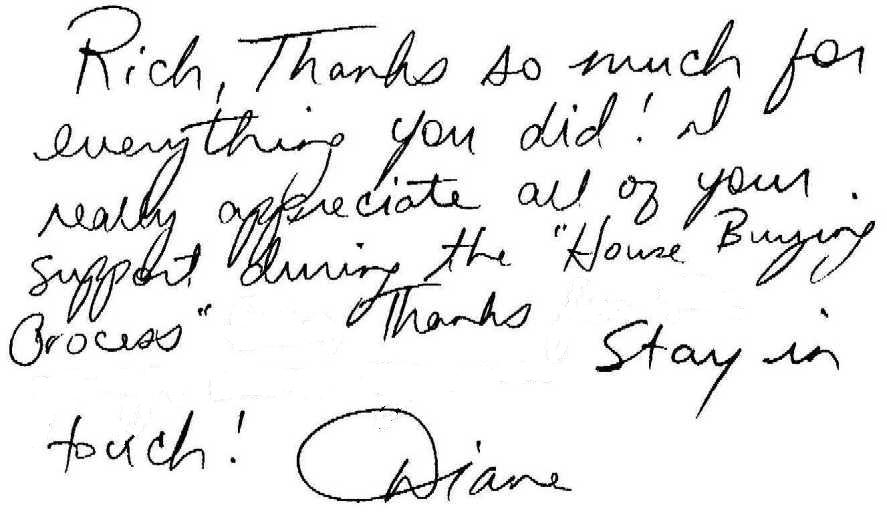 Rich, Thanks so much for
everything you did! I
really appreciate all of your
support during the "House Buying
Process" Thanks
Stay in
touch! Diane